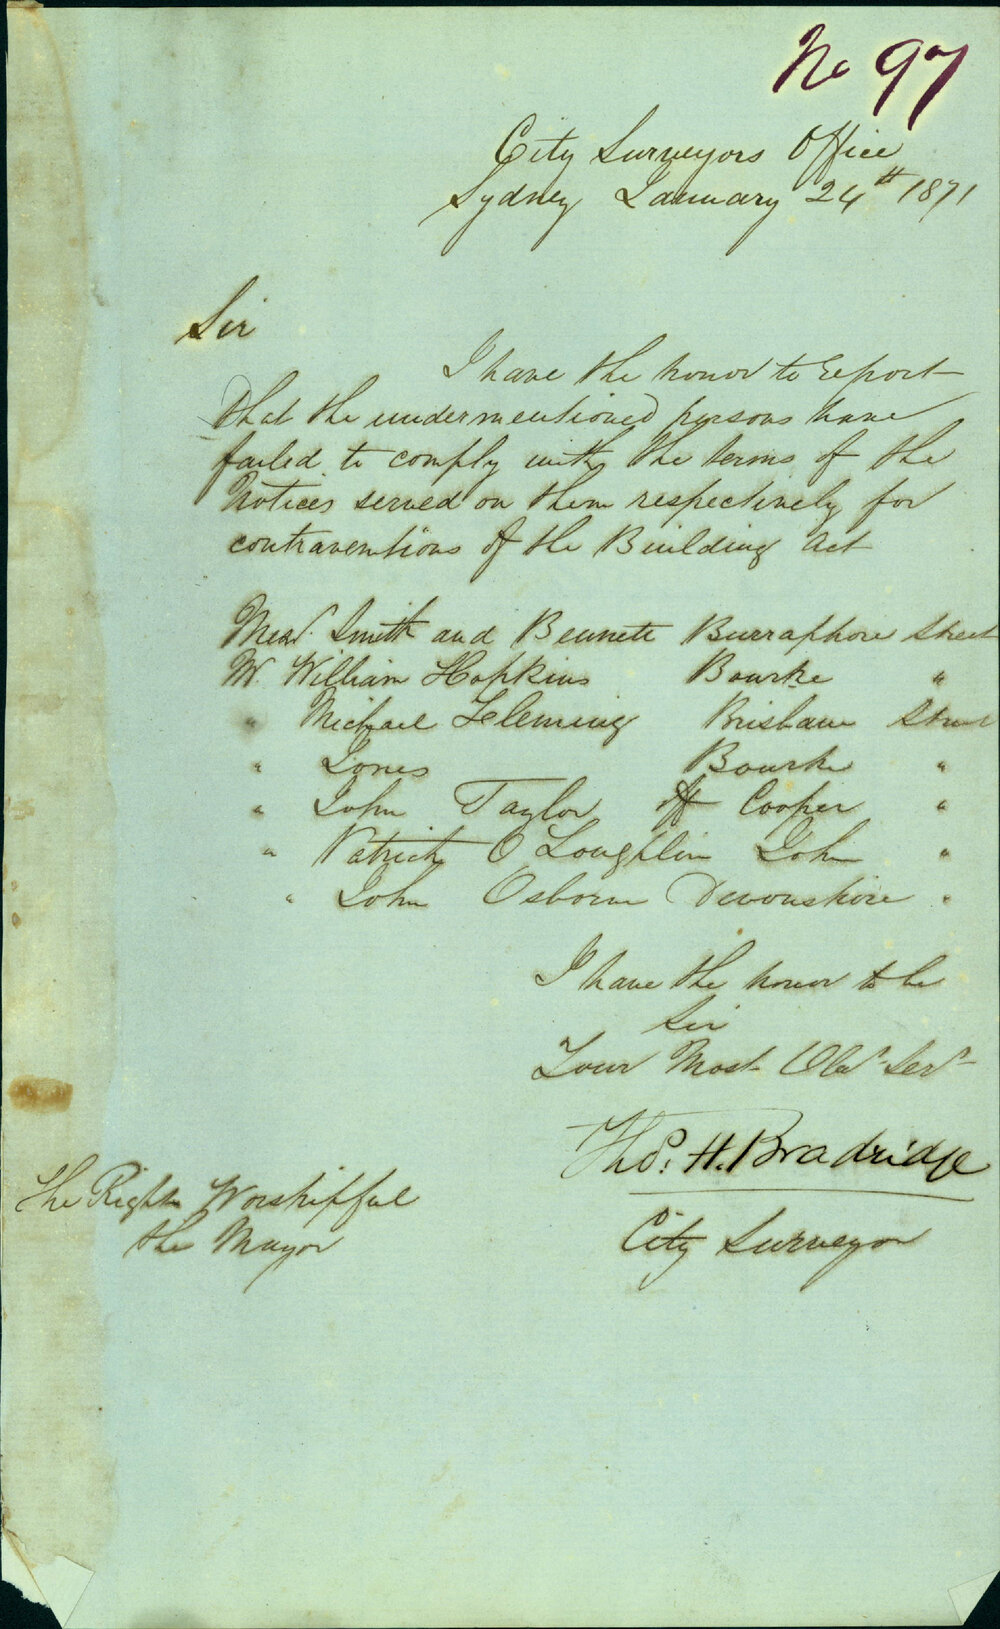 No 97
City Surveyors Office
Sydney January 24th 1871
Sir
I have the honor to report
that the undermentioned persons have
failed to comply with the terms of the
Notices served on them respectively for
contraventions of the Building Act
Messrs. Smith and Bennett Burraphore Street
Mr William Hopkins Bourke "
" Michael Fleming Brisbane Street
" Jones Bourke "
" John Taylor off Cooper "
" Patrick O Loughlin John "
" John Osborne Devonshire "
I have the honor to be
Sir
Your Most Obdt Servt
Thos. H. Bradridge
City Surveyor
The Right Worshipful
the Mayor